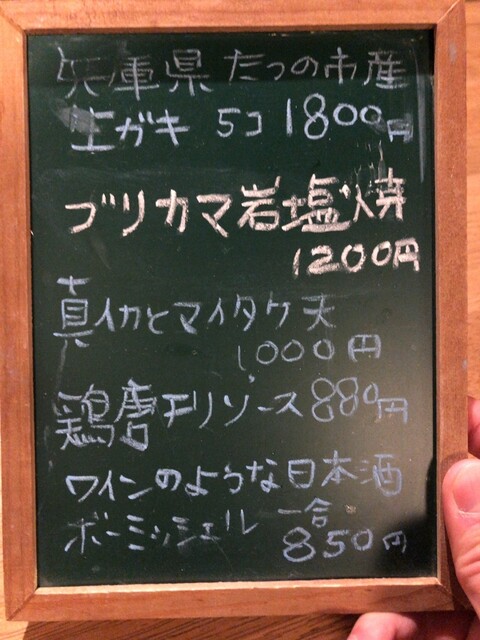 兵庫県たつの市産
生ガキ 5コ 1800円
ブリカマ岩塩焼
1200円
真イカとマイタケ天
1000円
鶏唐チリソース 880円
ワインのような日本酒
ボーミッシェル 一合
850円